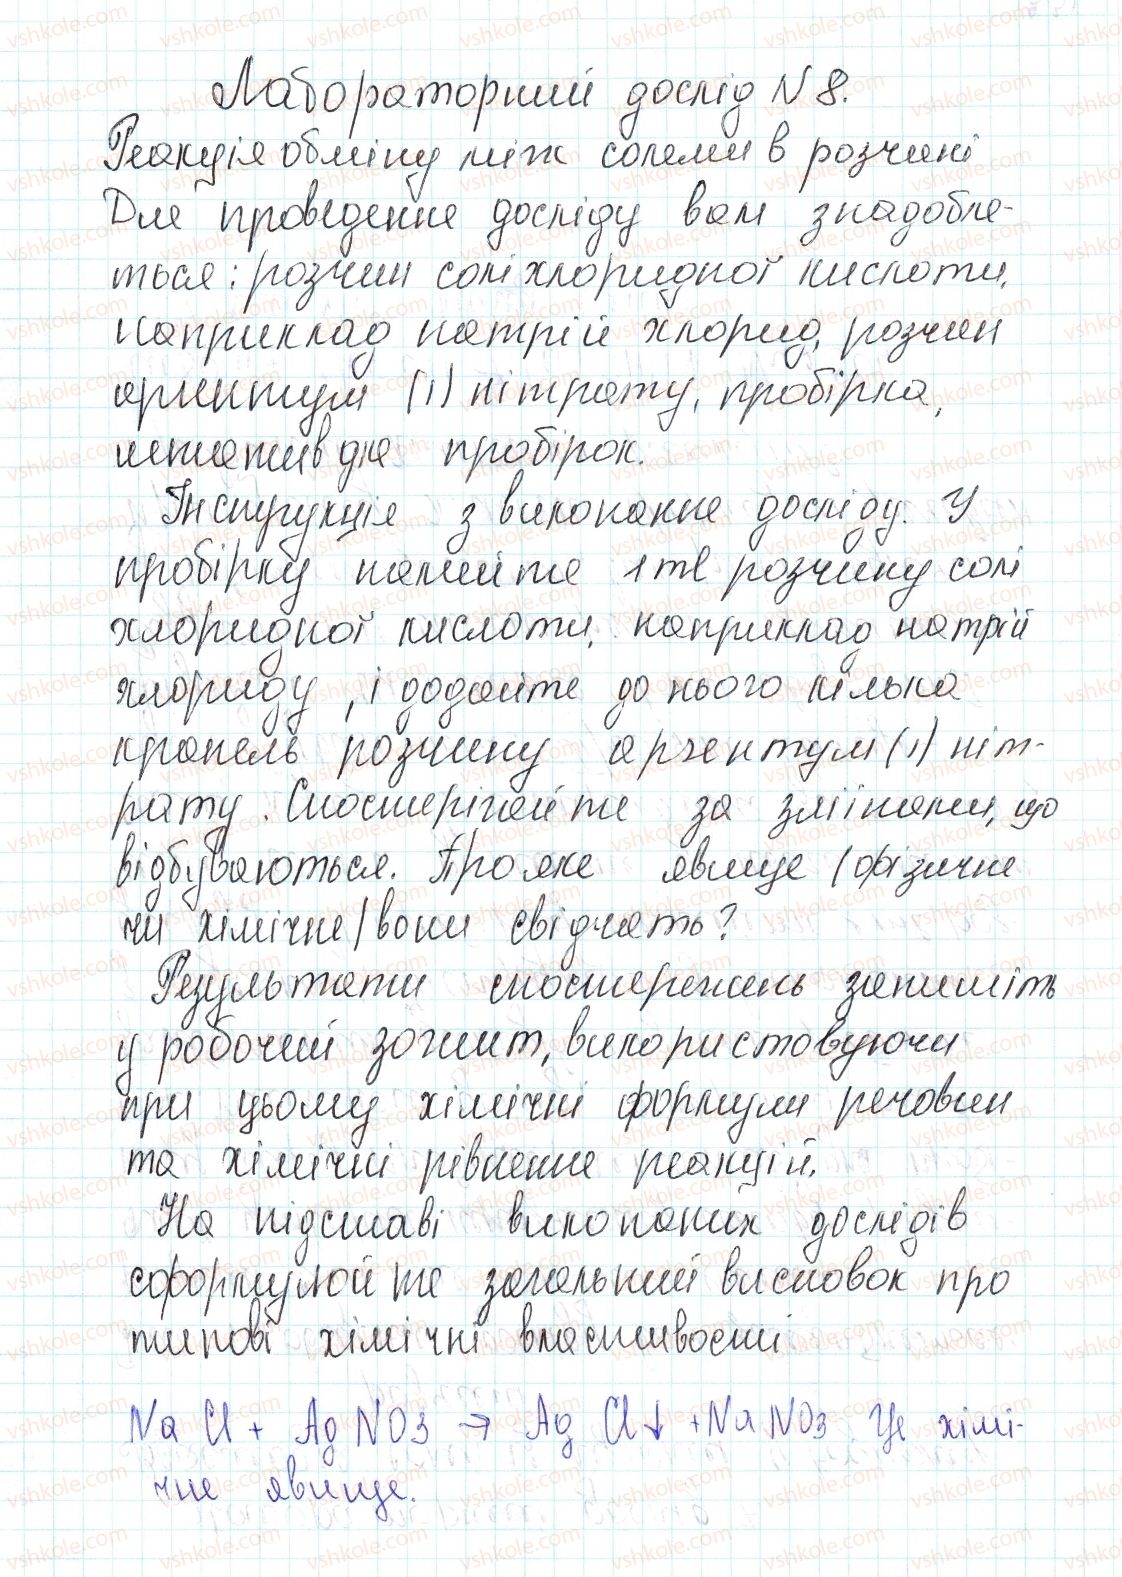 Лабораторний дослід N 8.
Реакція обміну між солями в розчині
Для проведення досліду вам знадобля-
ться: розчин солі хлоридної кислоти,
наприклад натрій хлорид, розчин
аргентум (I) нітрату, пробірка,
штатив для пробірок.
Інструкція з виконання досліду. У
пробірку налийте 1 ml розчину солі
хлоридної кислоти, наприклад натрій
хлориду, і додайте до нього кілька
крапель розчину аргентум (I) ніт-
рату. Спостерігайте за змінами, що
відбуваються. Про яке явище (фізичне
чи хімічне) вони свідчать?
Результати спостережень запишіть
у робочий зошит, використовуючи
при цьому хімічні формули речовин
та хімічні рівняння реакцій.
На підставі виконаних дослідів
сформулюйте загальний висновок про
типові хімічні властивості
NaCl + AgNO3 → AgCl↓ + NaNO3. Це хімі-
чне явище.
vshkole.com